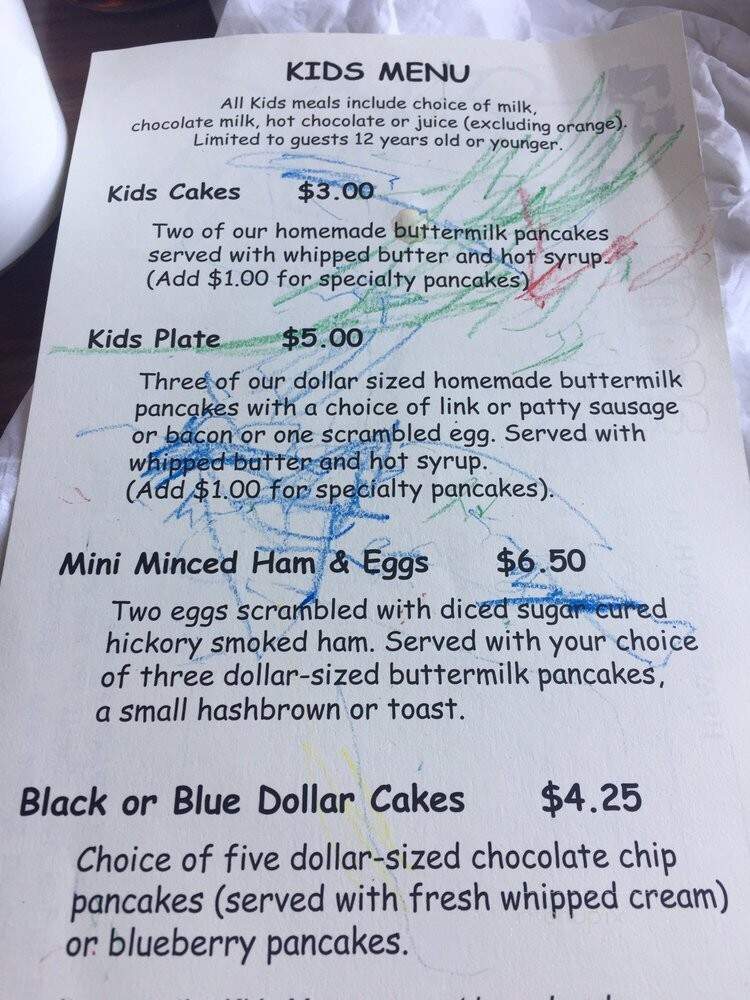 KIDS MENU
All Kids meals include choice of milk,
chocolate milk, hot chocolate or juice (excluding orange).
Limited to guests 12 years old or younger.
Kids Cakes $3.00
Two of our homemade buttermilk pancakes
served with whipped butter and hot syrup.
(Add $1.00 for specialty pancakes)
Kids Plate $5.00
Three of our dollar sized homemade buttermilk
pancakes with a choice of link or patty sausage
or bacon or one scrambled egg. Served with
whipped butter and hot syrup.
(Add $1.00 for specialty pancakes).
Mini Minced Ham & Eggs $6.50
Two eggs scrambled with diced sugar cured
hickory smoked ham. Served with your choice
of three dollar-sized buttermilk pancakes,
a small hashbrown or toast.
Black or Blue Dollar Cakes $4.25
Choice of five dollar-sized chocolate chip
pancakes (served with fresh whipped cream)
or blueberry pancakes.